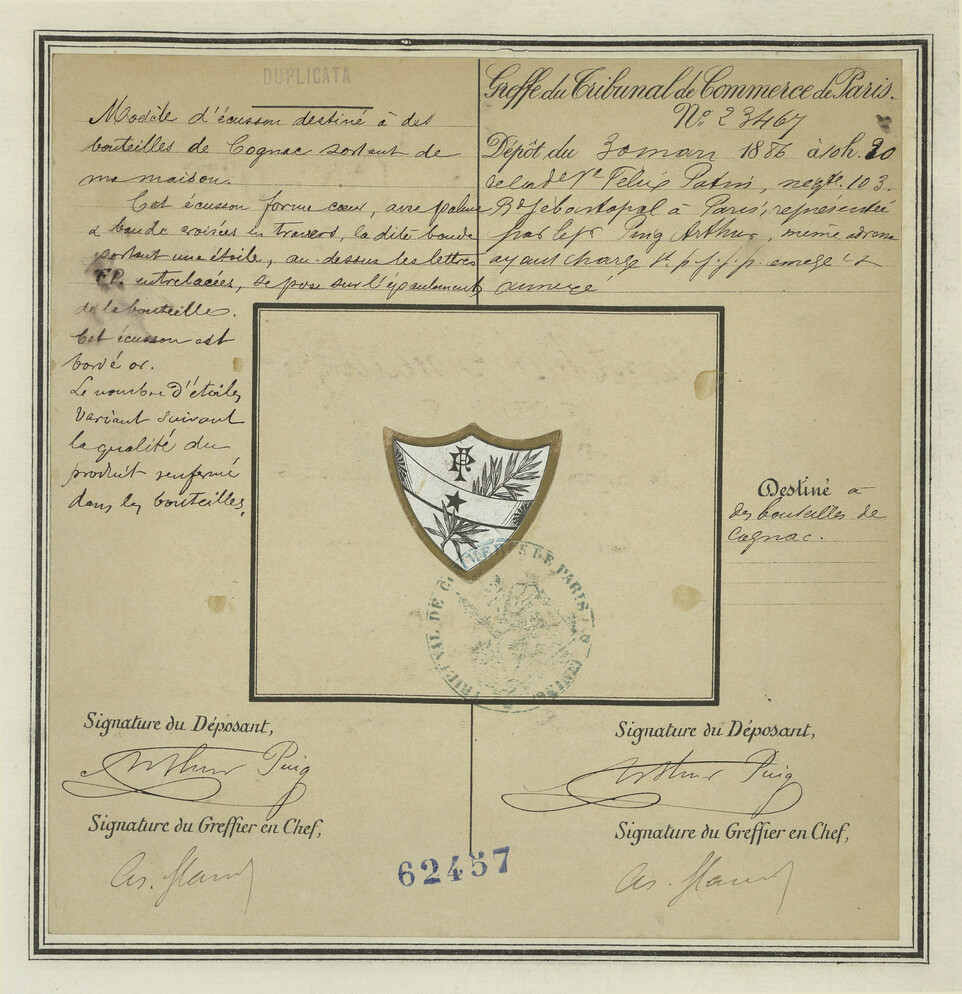 DUPLICATA
Modèle d'écusson destiné à des
bouteilles de Cognac sortant de
ma maison.
Cet écusson forme cœur, avec palme
& bande croisées en travers, la dite bande
portant une étoile, au-dessus les lettres
F.P. entrelacées, se pose sur l'épaulement
de la bouteille.
Cet écusson est
bordé or.
Le nombre d'étoiles
variant suivant
la qualité du
produit renfermé
dans les bouteilles.
Greffe du Tribunal de Commerce de Paris.
No. 23467
Dépôt du 30 mars 1886 à 10h. 30
Ve Félix Potin, negte. 103.
Bd Sébastopol à Paris, représentée
par le sr Puig Arthur, même adresse
ayant charge
annexé
FP
Destiné à
des bouteilles de
Cognac.
TRIBUNAL DE COMMERCE DE PARIS
Signature du Déposant,
Arthur Puig
Signature du Greffier en Chef,
Signature du Déposant,
Arthur Puig
Signature du Greffier en Chef,
62457